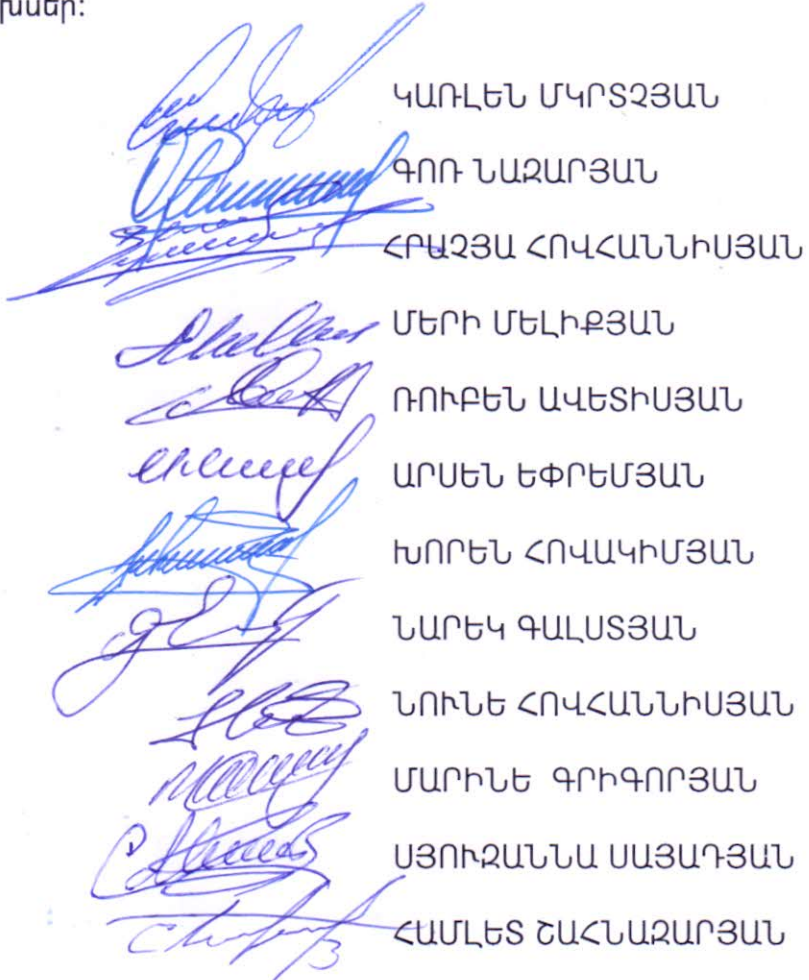 ԿԱՌԼԵՆ ՄԿՐՏՉՅԱՆ
ԳՈՌ ՆԱԶԱՐՅԱՆ
ՀՐԱՉՅԱ ՀՈՎՀԱՆՆԻՍՅԱՆ
ՄԵՐԻ ՄԵԼԻՔՅԱՆ
ՌՈՒԲԵՆ ԱՎԵՏԻՍՅԱՆ
ԱՐՍԵՆ ԵՓՐԵՄՅԱՆ
ԽՈՐԵՆ ՀՈՎԱԿԻՄՅԱՆ
ՆԱՐԵԿ ԳԱԼՍՏՅԱՆ
ՆՈՒՆԵ ՀՈՎՀԱՆՆԻՍՅԱՆ
ՄԱՐԻՆԵ ԳՐԻԳՈՐՅԱՆ
ՍՅՈՒԶԱՆՆԱ ՍԱՅԱԴՅԱՆ
ՀԱՄԼԵՏ ՇԱՀՆԱԶԱՐՅԱՆ